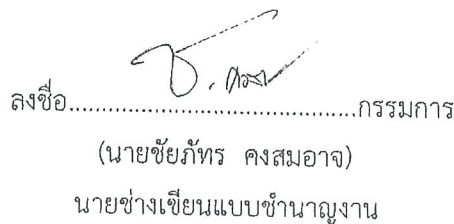 ลงชื่อ................................................กรรมการ
(นายชัยภัทร คงสมอาจ)
นายช่างเขียนแบบชำนาญงาน